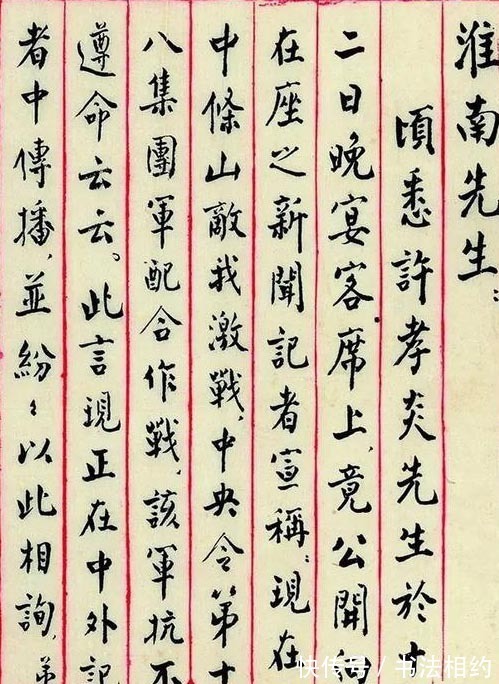 淮南先生：
頃悉許孝炎先生於
二日晚宴客席上，竟公開
在座之新聞記者宣稱：現在
中條山敵我激戰，中央令第十
八集團軍配合作戰，該軍抗不
遵命云云。此言現正在中外記
者中傳播，並紛々以此相詢，弟
快传号 / 书法相约